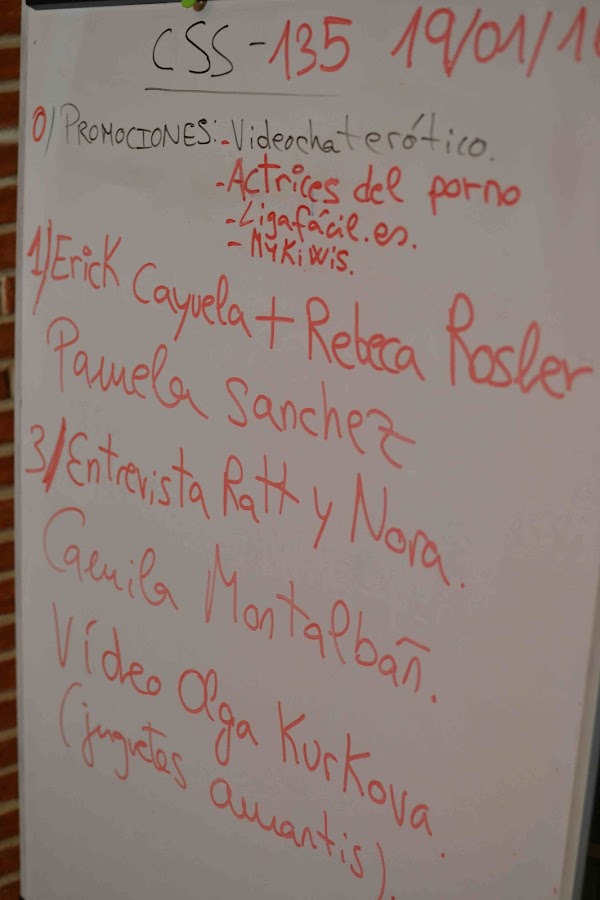 CSS-135 19/01/1
0/ PROMOCIONES: - Videochat erótico.
- Actrices del porno
- Ligafácil.es.
- MyKiwis.
1/ Erick Cayuela + Rebeca Rosler
Pamela Sanchez
3/ Entrevista Ratt y Nora.
Camila Montalbañ.
Vídeo Olga Kurkova.
(juguetes amantis).